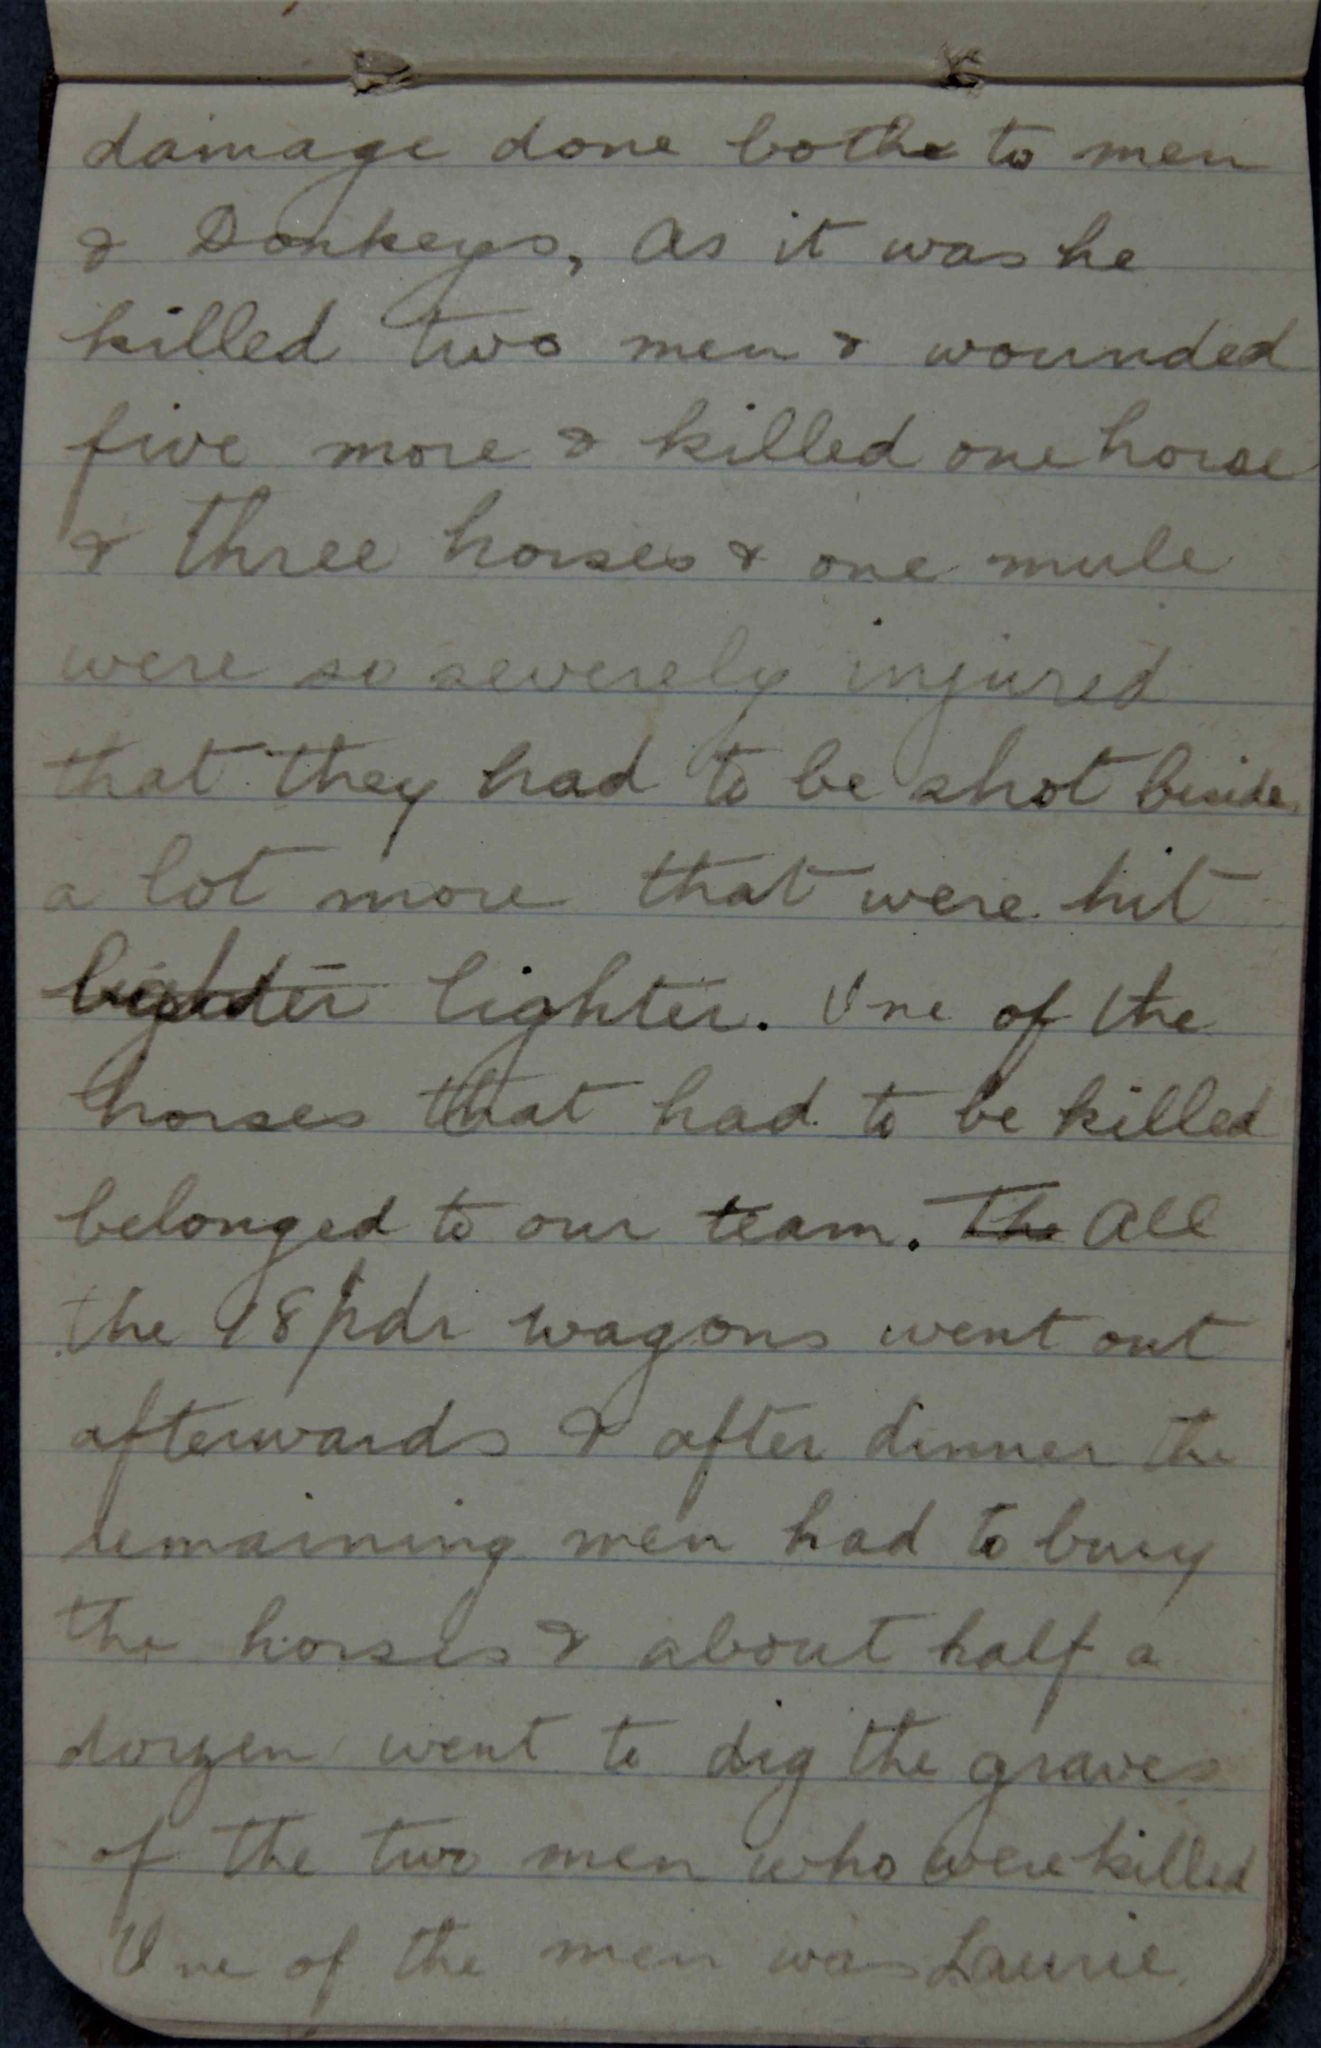 damage done bothe to men
& Donkeys, As it was he
killed two men & wounded
five more & killed one horse
& three horses & one mule
were so severely injured
that they had to be shot beside
a lot more that were hit
lighter. One of the
horses that had to be killed
belonged to our team. The All
the 18 pdr wagons went out
afterwards & after dinner the
remaining men had to bury
the horses & about half a
dorzen went to dig the graves
of the two men who were killed
One of the men was Laurie